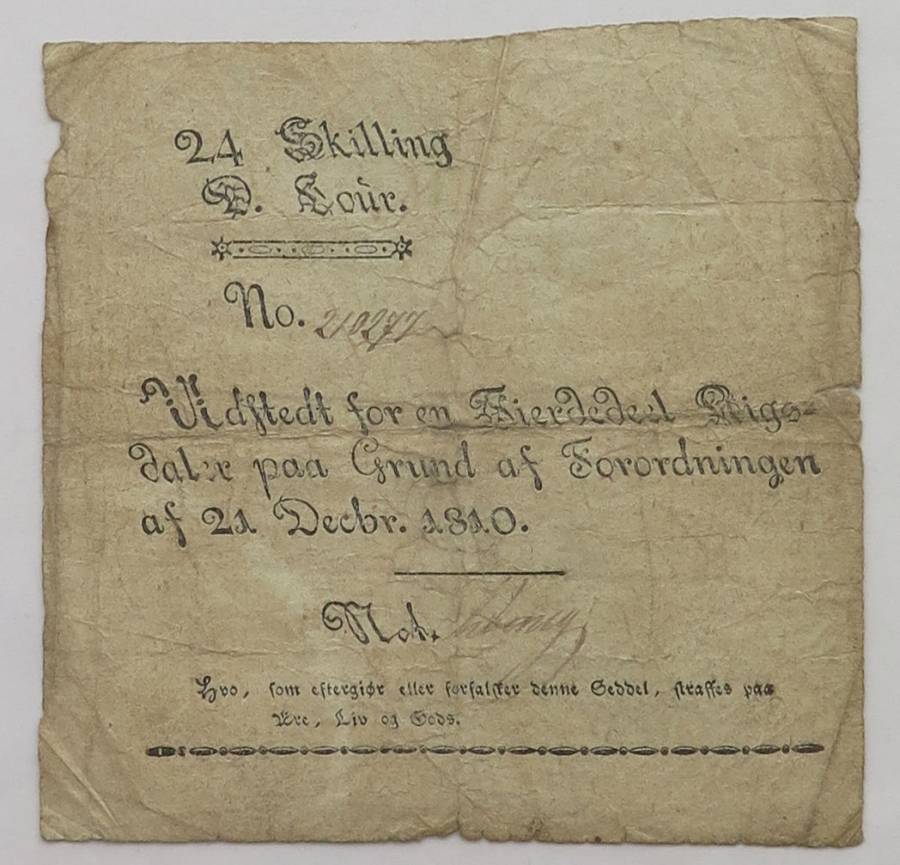 24 Skilling
D. Cour.
No. 210277
Udstedt for en Fierdedeel Rigs-
daler paa Grund af Forordningen
af 21 Decbr. 1810.
Not.
Hvo, som eftergiør eller forfalsker denne Seddel, straffes paa
Ære, Liv og Gods.